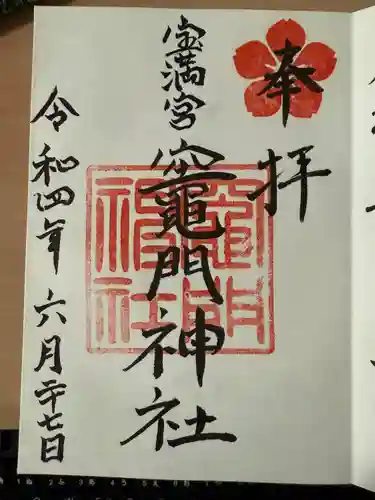 奉拝
宝満宮
竈門神社
令和四年六月二十七日
竈門
神社